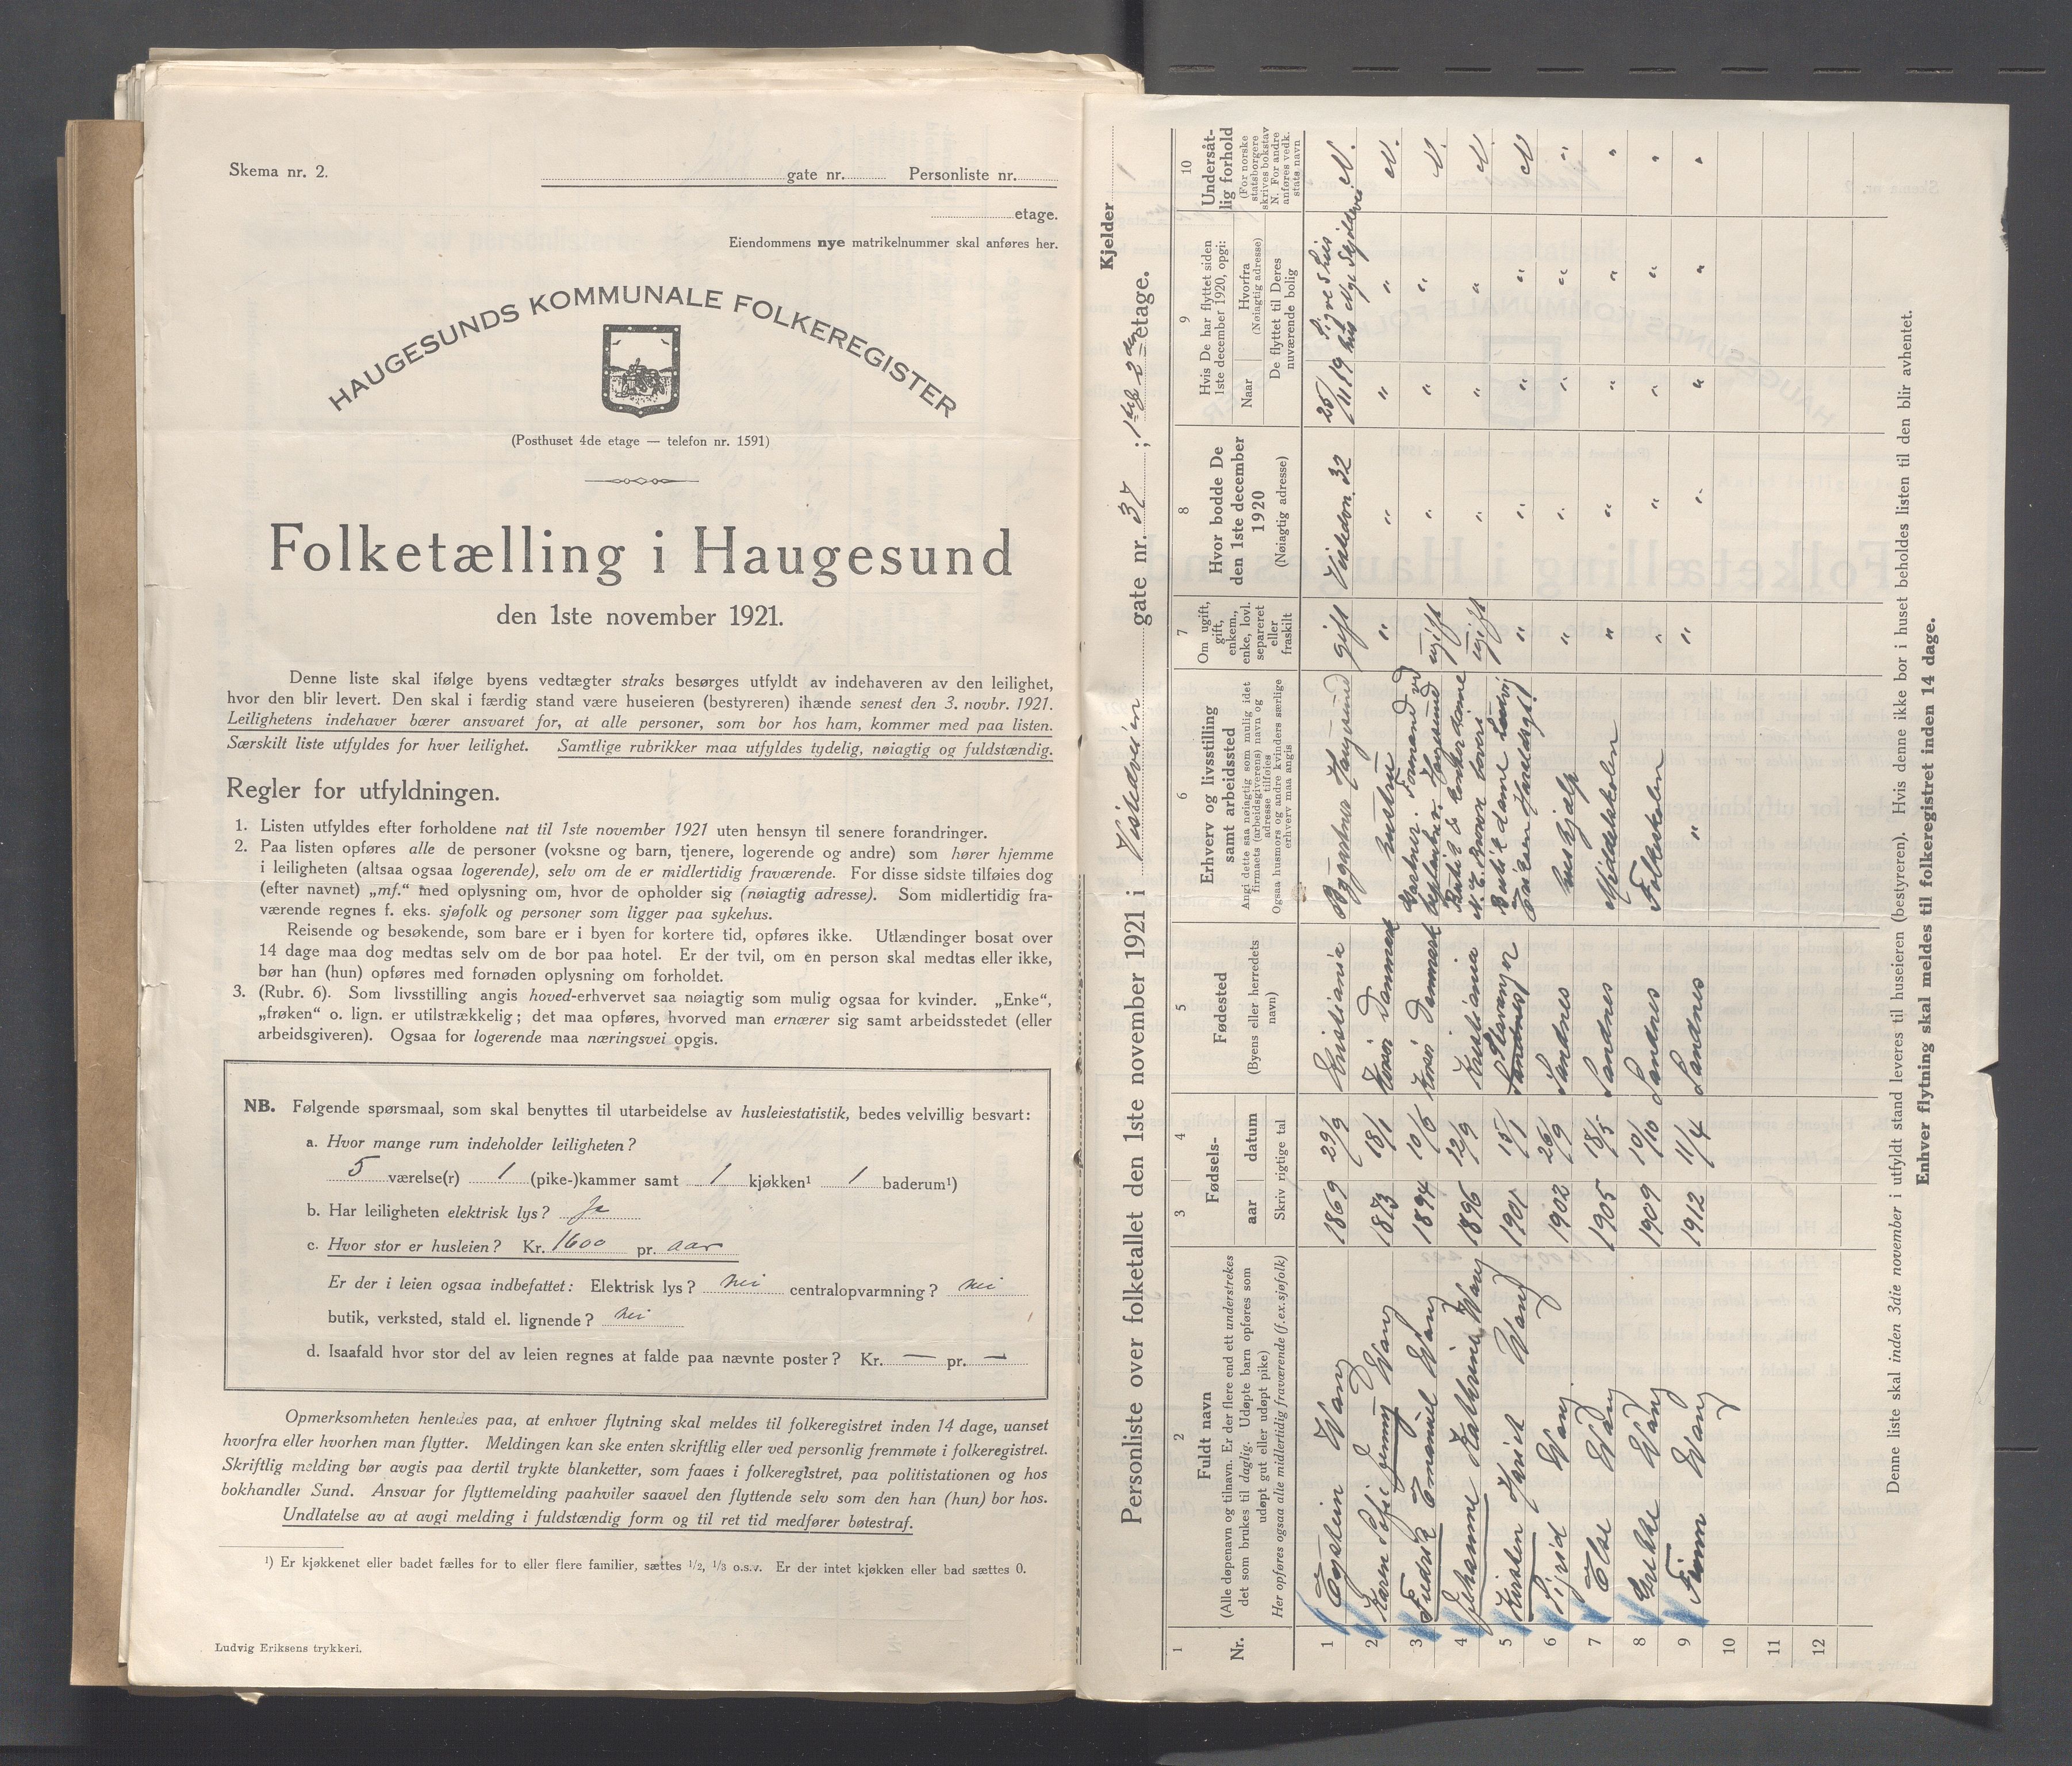 Skema nr. 2.
gate nr. Personliste nr.
etage.
Eiendommens nye matrikelnummer skal anføres her.
HAUGESUNDS KOMMUNALE FOLKEREGISTER
(Posthuset 4de etage — telefon nr. 1591)
Folketælling i Haugesund
den 1ste november 1921.
Denne liste skal ifølge byens vedtægter straks besørges utfyldt av indehaveren av den leilighet,
hvor den blir levert. Den skal i færdig stand være huseieren (bestyreren) ihænde senest den 3. novbr. 1921.
Leilighetens indehaver bærer ansvaret for, at alle personer, som bor hos ham, kommer med paa listen.
Særskilt liste utfyldes for hver leilighet. Samtlige rubrikker maa utfyldes tydelig, nøiagtig og fuldstændig.
Regler for utfyldningen.
1. Listen utfyldes efter forholdene nat til 1ste november 1921 uten hensyn til senere forandringer.
2. Paa listen opføres alle de personer (voksne og barn, tjenere, logerende og andre) som hører hjemme
i leiligheten (altsaa ogsaa logerende), selv om de er midlertidig fraværende. For disse sidste tilføies dog
(efter navnet) „mf.“ med oplysning om, hvor de opholder sig (nøiagtig adresse). Som midlertidig fra-
værende regnes f. eks. sjøfolk og personer som ligger paa sykehus.
Reisende og besøkende, som bare er i byen for kortere tid, opføres ikke. Utlændinger bosat over
14 dage maa dog medtas selv om de bor paa hotel. Er der tvil, om en person skal medtas eller ikke,
bør han (hun) opføres med fornøden oplysning om forholdet.
3. (Rubr. 6). Som livsstilling angis hoved-erhvervet saa nøiagtig som mulig ogsaa for kvinder. „Enke“,
„frøken“ o. lign. er utilstrækkelig; det maa opføres, hvorved man ernærer sig samt arbeidsstedet (eller
arbeidsgiveren). Ogsaa for logerende maa næringsvei opgis.
NB. Følgende spørsmaal, som skal benyttes til utarbeidelse av husleiestatistik, bedes velvillig besvart:
a. Hvor mange rum indeholder leiligheten?
5 værelse(r) 1 (pike-)kammer samt 1 kjøkken¹ 1 baderum¹)
b. Har leiligheten elektrisk lys? Ja
c. Hvor stor er husleien? Kr. 1600 pr. aar
Er der i leien ogsaa indbefattet: Elektrisk lys? nei centralopvarmning? nei
butik, verksted, stald el. lignende? nei
d. Isaafald hvor stor del av leien regnes at falde paa nævnte poster? Kr. — pr. —
Opmerksomheten henledes paa, at enhver flytning skal meldes til folkeregistret inden 14 dage, uanset
hvorfra eller hvorhen man flytter. Meldingen kan ske enten skriftlig eller ved personlig fremmøte i folkeregistret.
Skriftlig melding bør avgis paa dertil trykte blanketter, som faaes i folkeregistret, paa politistationen og hos
bokhandler Sund. Ansvar for flyttemelding paahviler saavel den flyttende selv som den han (hun) bor hos.
Undlatelse av at avgi melding i fuldstændig form og til ret tid medfører bøtestraf.
¹) Er kjøkkenet eller badet fælles for to eller flere familier, sættes 1/2, 1/3 o.s.v. Er der intet kjøkken eller bad sættes 0.
Ludvig Eriksens trykkeri.
Kjelder
Personliste over folketallet den 1ste november 1921 i Visedalsveien gate nr. 37; 1ste & 2den etage.
1 2 3 4 5 6 7 8 9 10
Nr.
Fuldt navn
(Alle døpenavn og tilnavn. Er der flere end ett understrekes
det som brukes til daglig. Udøpte barn opføres som
udøpt gut eller udøpt pike)
Her opføres ogsaa alle midlertidig fraværende (f.ex. sjøfolk)
Fødsels-
aar datum
Skriv rigtige tal
Fødested
(Byens eller herredets
navn)
Erhverv og livsstilling
samt arbeidssted
Angi dette saa nøiagtig som mulig idet
firmaets (arbeidsgiverens) navn og
adresse tilføies
Ogsaa husmors og andre kvinders særlige
erhverv maa angis
Om ugift,
gift,
enkem.,
enke, lovl.
separeret
eller
fraskilt
Hvor bodde De
den 1ste december
1920
(Nøiagtig adresse)
Hvis De har flyttet siden
1ste december 1920, opgi:
Naar
Hvorfra
(Nøiagtig adresse)
De flyttet til Deres
nuværende bolig
Undersåt-
lig forhold
(For norske
statsborgere
skrives bokstav
N. For andre
anføres vedk.
stats navn
1 Eystein Wang 1869 29/9 Kristiania Byggmester Haugesund gift 32 25/11 19 N.
2 Karen Sofie Jenny Wang 1873 18/1 Korsør Danmark hustru " " " " N.
3 Fredrik Emanuel Wang 1894 10/5 Korsør Danmark Formand ved Haugesund ugift " " " N.
4 Johanne Kathrine Wang 1896 12/9 Kristiania ugift " " " N.
5 Kirsten Harriet Wang 1901 15/1 Sandnes Stavanger " " " " N
6 Sigrid Wang 1902 26/9 Sandnes hushjelp " " " " "
7 Else Wang 1905 18/5 Sandnes Middelskolen " " " " "
8 Wang 1909 10/10 Sandnes Folkeskolen " " " " "
9 Finn Wang 1912 11/4 Sandnes " " " " " "
10
11
12
Denne liste skal inden 3die november i utfyldt stand leveres til huseieren (bestyreren). Hvis denne ikke bor i huset beholdes listen til den blir avhentet.
Enhver flytning skal meldes til folkeregistret inden 14 dage.